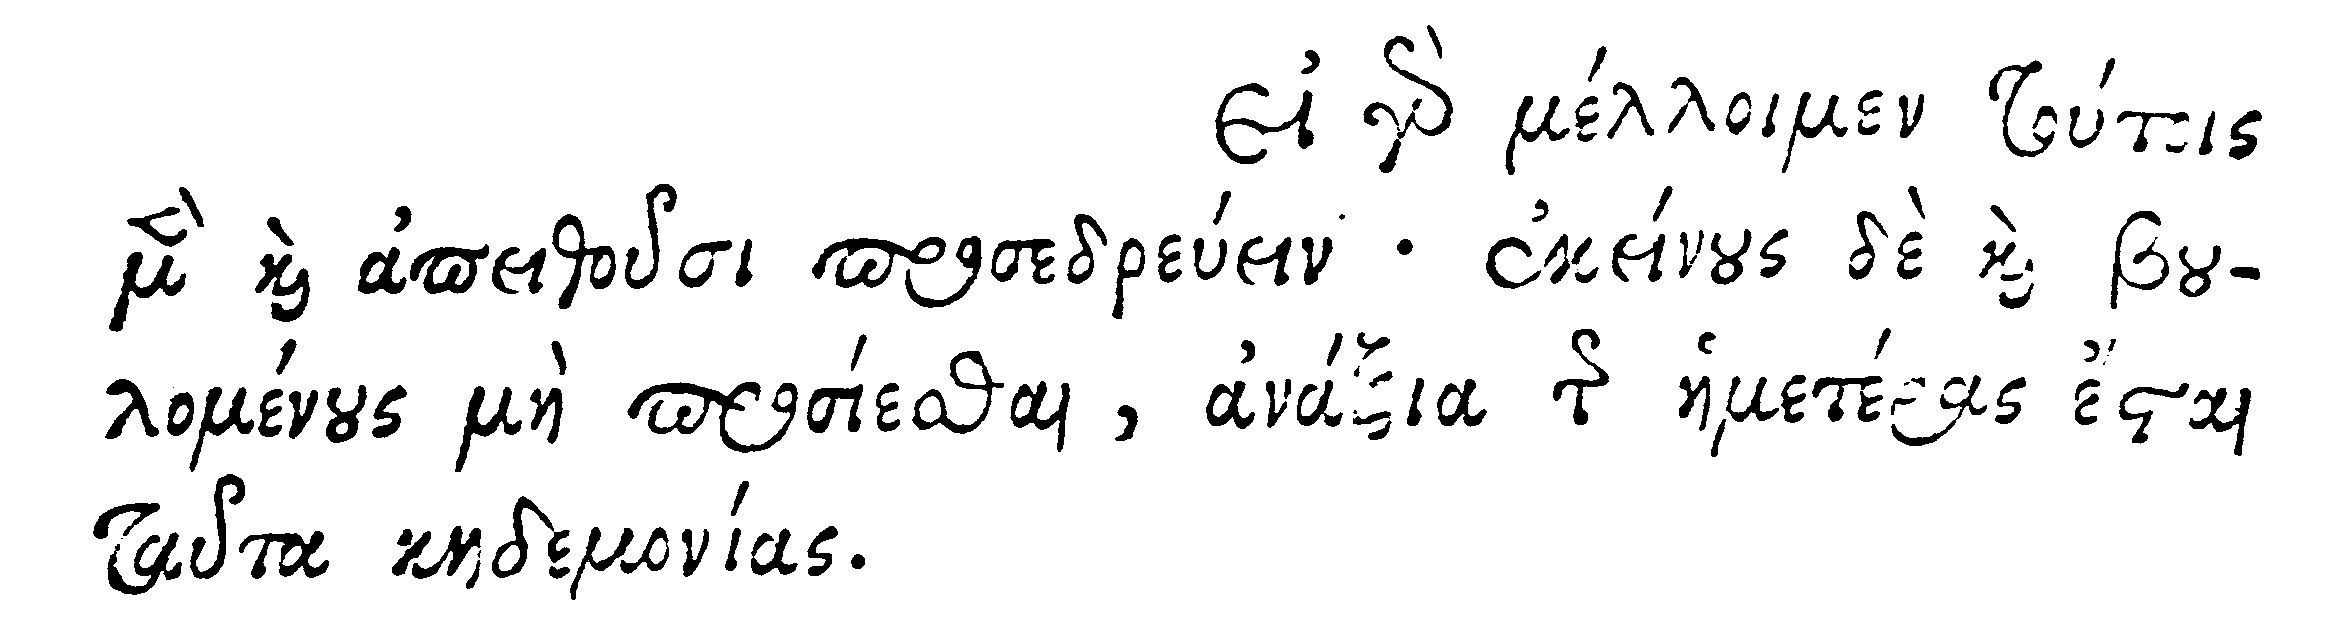 Εἰ γὰρ μέλλοιμεν τούτοις
μὲν καὶ ἀπειθοῦσι προσεδρεύειν · ἐκείνους δὲ καὶ βου-
λομένους μὴ προσίεσθαι, ἀνάξια τῆς ἡμετέρας ἔσται
ταῦτα κηδεμονίας.